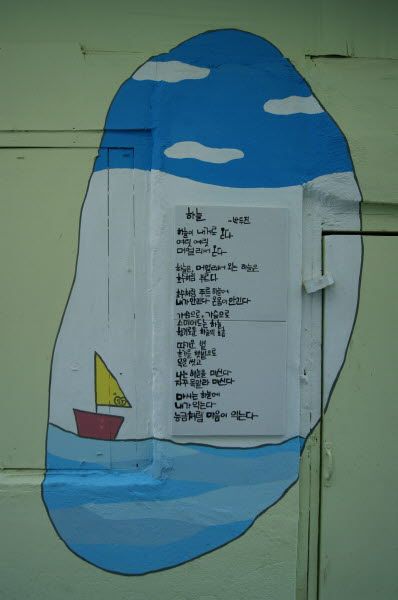 하늘
-박두진
하늘이 내게로 온다
여릿 여릿
머얼리서 온다
하늘은, 머얼리서 오는 하늘은
호수처럼 푸르다
호수처럼 푸른 하늘에
내가 안긴다 온몸이 안긴다
가슴으로, 가슴으로
스미어드는 하늘
향기로운 하늘의 호흡
따가운 볕
초가을 햇볕으로
목을 씻고
나는 하늘을 마신다
자꾸 목말라 마신다
마시는 하늘에
내가 익는다
능금처럼 마음이 익는다